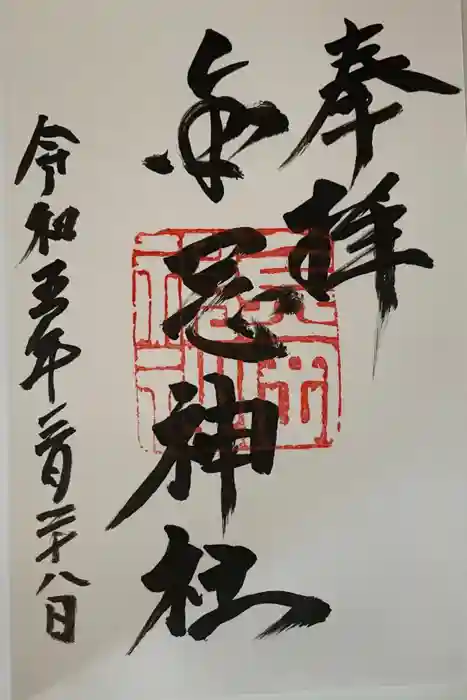 奉拝
亀岡神社
令和五年二月二十八日